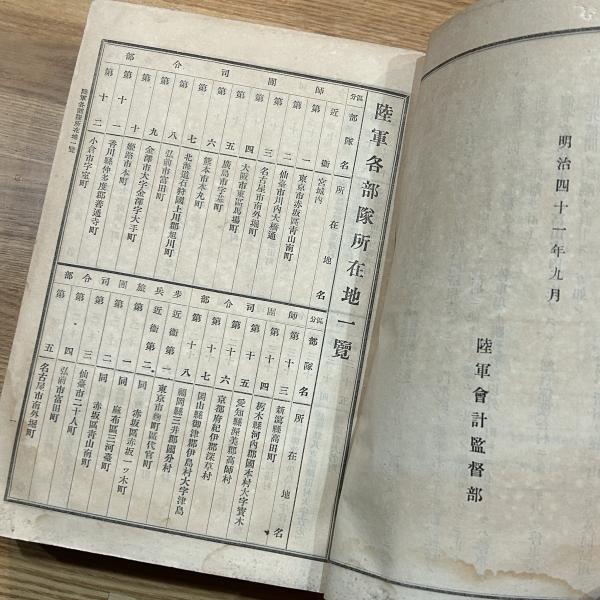 明治四十一年九月
陸軍會計監督部
陸軍各部隊所在地一覽
區分 部隊名 所在地名
師團司令部
近衞 宮城内
第一 東京市赤坂區青山南町
第二 仙臺市川内大橋通
第三 名古屋市南外堀町
第四 大阪市東區馬場町
第五 廣島市字基町
第六 熊本市本丸町
第七 北海道石狩國上川郡旭川町
第八 弘前市富田町
第九 金澤市大字金澤字大手町
第十 姫路市本町
第十一 香川縣仲多度郡善通寺町
第十二 小倉市字室町
區分 部隊名 所在地名
師團司令部
第十三 新潟縣高田町
第十四 栃木縣河内郡國本村大字寳木
第十五 愛知縣渥美郡高師村
第十六 京都府紀伊郡深草村
第十七 岡山縣御津郡伊島村大字津島
第十八 福岡縣三井郡國分村
步兵旅團司令部
近衞第一 東京市麹町區代官町
近衞第二 同 赤坂區赤坂一ツ木町
第一 同 麻布區三河臺町
第二 同 赤坂區青山南町
第三 仙臺市二十人町
第四 弘前市富田町
第五 名古屋市南外堀町
陸軍各部隊所在地一覽
一